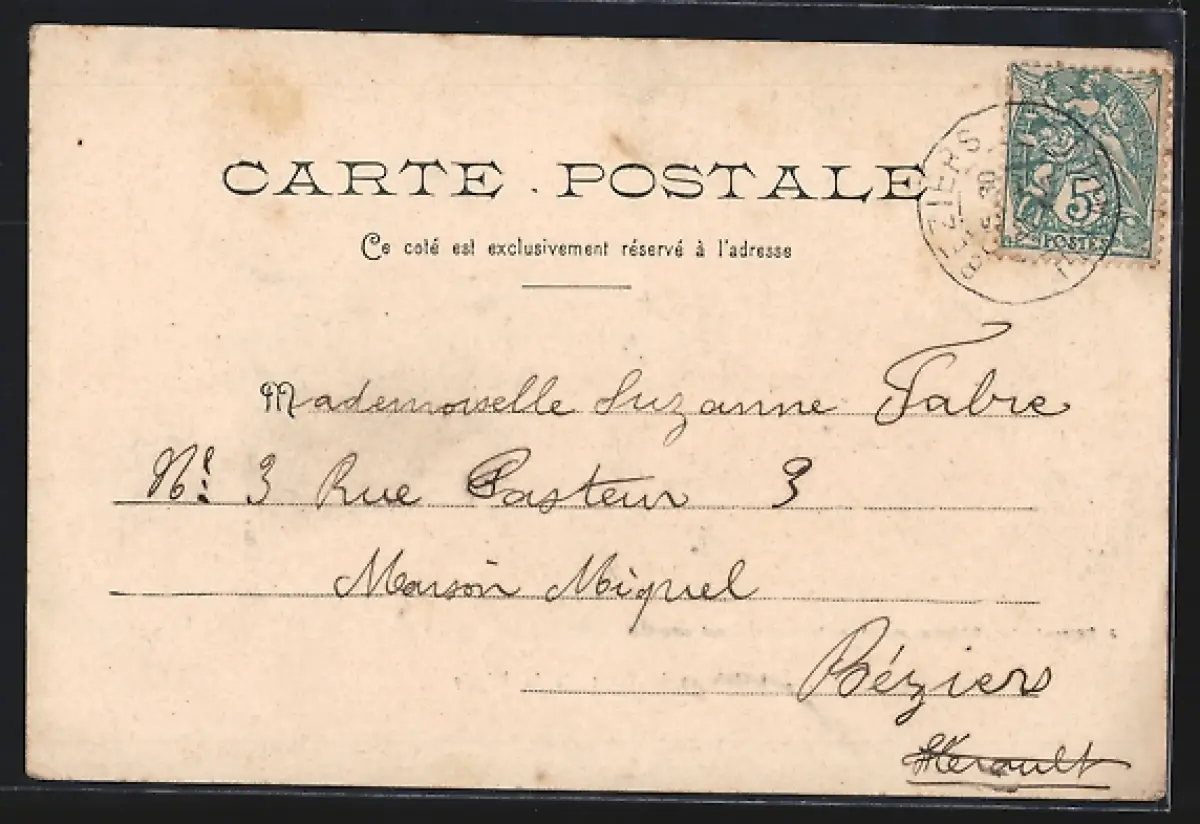 CARTE POSTALE
Ce coté est exclusivement réservé à l'adresse
BEZIERS
5
POSTES
Mademoiselle Suzanne Fabre
N°: 3 Rue Pasteur 3
Maison Miquel
Béziers
Hérault